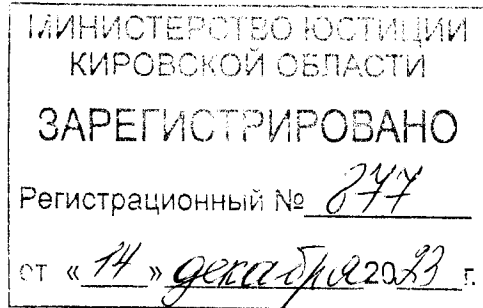 МИНИСТЕРСТВО ЮСТИЦИИ
КИРОВСКОЙ ОБЛАСТИ
ЗАРЕГИСТРИРОВАНО
Регистрационный № 877
от « 14 » декабря 2023 г.